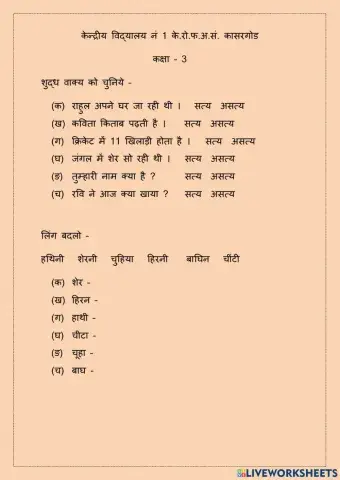 केन्द्रीय विद्यालय नं 1 के.रो.फ.अ.सं. कासरगोड
कक्षा - 3
शुद्ध वाक्य को चुनिये -
(क) राहुल अपने घर जा रही थी । सत्य असत्य
(ख) कविता किताब पढ़ती है । सत्य असत्य
(ग) क्रिकेट में 11 खिलाड़ी होता है । सत्य असत्य
(घ) जंगल में शेर सो रही थी । सत्य असत्य
(ङ) तुम्हारी नाम क्या है ? सत्य असत्य
(च) रवि ने आज क्या खाया ? सत्य असत्य
लिंग बदलो -
हथिनी शेरनी चुहिया हिरनी बाघिन चींटी
(क) शेर -
(ख) हिरन -
(ग) हाथी -
(घ) चीटा -
(ङ) चूहा -
(च) बाघ -
LIVEWORKSHEETS